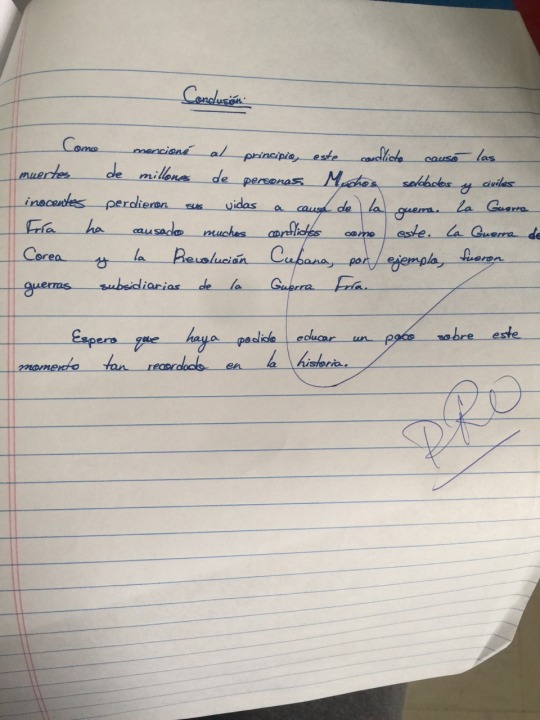 Conclusión:
Como mencioné al principio, este conflicto causó las
muertes de millones de personas. Muchos soldados y civiles
inocentes perdieron sus vidas a causa de la guerra. La Guerra
Fría ha causado muchos conflictos como este. La Guerra de
Corea y la Revolución Cubana, por ejemplo, fueron
guerras subsidiarias de la Guerra Fría.
Espero que haya podido educar un poco sobre este
momento tan recordado en la historia.
PRO